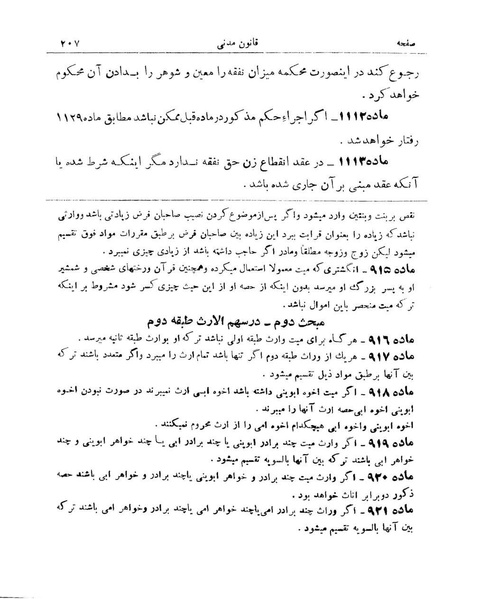 صفحه قانون مدنی ۲۰۷
رجوع کند در اینصورت محکمه میزان نفقه را معین و شوهر را بدادن آن محکوم
خواهد کرد .
ماده ۱۱۱۲ ـ اگر اجراء حکم مذکور در ماده قبل ممکن نباشد مطابق ماده ۱۱۲۹
رفتار خواهد شد .
ماده ۱۱۱۳ ـ در عقد انقطاع زن حق نفقه ندارد مگر اینکه شرط شده یا
آنکه عقد مبنی بر آن جاری شده باشد .
نقص بربنت وبنتین وارد میشود واگر پس ازموضوع کردن نصیب صاحبان فرض زیادتی باشد ووارثی
نباشد که زیاده را بعنوان قرابت ببرد این زیاده بین صاحبان فرض برطبق مقررات مواد فوق تقسیم
میشود لیکن زوج وزوجه مطلقا ومادر اگر حاجب داشته باشد از زیادی چیزی نمیبرد .
ماده ۹۱۵ ـ انگشتری که میت معمولا استعمال میکرده وهمچنین قرآن ورختهای شخصی و شمشیر
او به پسر بزرگ او میرسد بدون اینکه از حصه او از این حیث چیزی کسر شود مشروط بر اینکه
ترکه میت منحصر باین اموال نباشد .
مبحث دوم ـ درسهم الارث طبقه دوم
ماده ۹۱۶ ـ هرگاه برای میت وارث طبقه اولی نباشد ترکه او بوارث طبقه ثانیه میرسد .
ماده ۹۱۷ ـ هریك از وراث طبقه دوم اگر تنها باشد تمام ارث را میبرد واگر متعدد باشند ترکه
بین آنها برطبق مواد ذیل تقسیم میشود .
ماده ۹۱۸ ـ اگر میت اخوه ابوینی داشته باشد اخوه ابی ارث نمیبرند در صورت نبودن اخوه
ابوینی اخوه ابی حصه ارث آنها را میبرند .
اخوه ابوینی واخوه ابی هیچکدام اخوه امی را از ارث محروم نمیکنند .
ماده ۹۱۹ ـ اگر وارث میت چند برادر ابوینی یا چند برادر ابی یا چند خواهر ابوینی و چند
خواهر ابی باشند ترکه بین آنها بالسویه تقسیم میشود .
ماده ۹۲۰ ـ اگر وارث میت چند برادر و خواهر ابوینی یاچند برادر و خواهر ابی باشند حصه
ذکور دوبرابر اناث خواهد بود .
ماده ۹۲۱ ـ اگر وراث چند برادر امی یاچند خواهر امی یاچند برادر وخواهر امی باشند ترکه
بین آنها بالسویه تقسیم میشود .